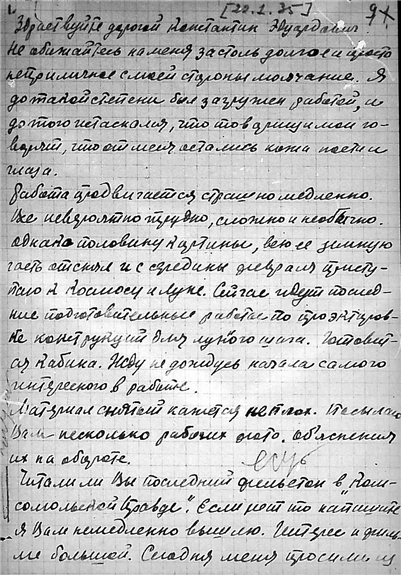 [20.1.35]
Здраствуйте дорогой Константин Эдуардович!
Не обижайтесь на меня за столь долгое и просто
неприличное с моей стороны молчание. Я
до такой степени был загружен работой, и
до того истаскался, что товарищи мои го-
ворят, что от меня остались кожа кости и
глаза.
Работа продвигается страшно медленно.
Все невероятно трудно, сложно и необычно.
Однако половину картины, всю ее зимнюю
часть отснял и с средины февраля присту-
паю к космосу и луне. Сейчас идут послед-
ние подготовительные работы по проэктиров-
ке конструкций для лунного шага. Готовит-
ся кабина. Жду не дождусь начала самого
интересного в работе.
Материал снятый кажется неплох. Посылаю
Вам несколько рабочих фото. Объяснения
их на обороте.
есть
Читали ли Вы последний фельетон в "Ком-
сомольской Правде". Если нет то напишите
я Вам немедленно вышлю. Интерес к филь-
ме большой. Сегодня меня просили из